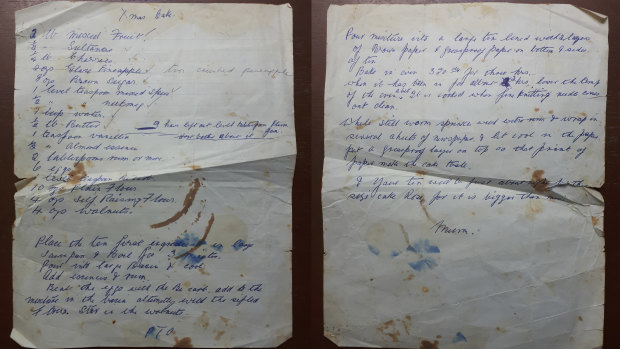 X mas Cake.
2 lb Mixed Fruit
Sultanas
lb Cherries
4 ozs Glace Pineapple tin crushed pineapple
8 ozs Brown Sugar
1 level teaspoon mixed spice
" nutmeg
cup water
lb Butter
1 teaspoon vanilla
" Almond essence
2 tablespoons rum or more
6 eggs
teaspoon Bi carb
10 ozs Plain Flour
4 ozs Self Raising Flour
4 ozs walnuts
Place the ten first ingredients in large
Saucepan & Boil for 3 minutes
Pour into large Basin & cool
Add essences & rum
Beat the eggs with the Bi carb add to the
mixture in the basin alternatly with the sifted
flours. Stir in the walnuts
P.T.O.
Pour mixture into a large tin lined with layers
of Brown paper & greaseproof paper on bottom & sides
of tin
Bake in oven for three hrs.
when it has been in for about hrs, lower the temp
of the oven. It is cooked when fine knitting needle comes
out clean.
Whilst still warm sprinkle well with rum & wrap in
several sheets of newspaper & let cool in the paper
put a greaseproof layer on top so that print of
paper wont the cake
size cake for it is bigger than
Mum.